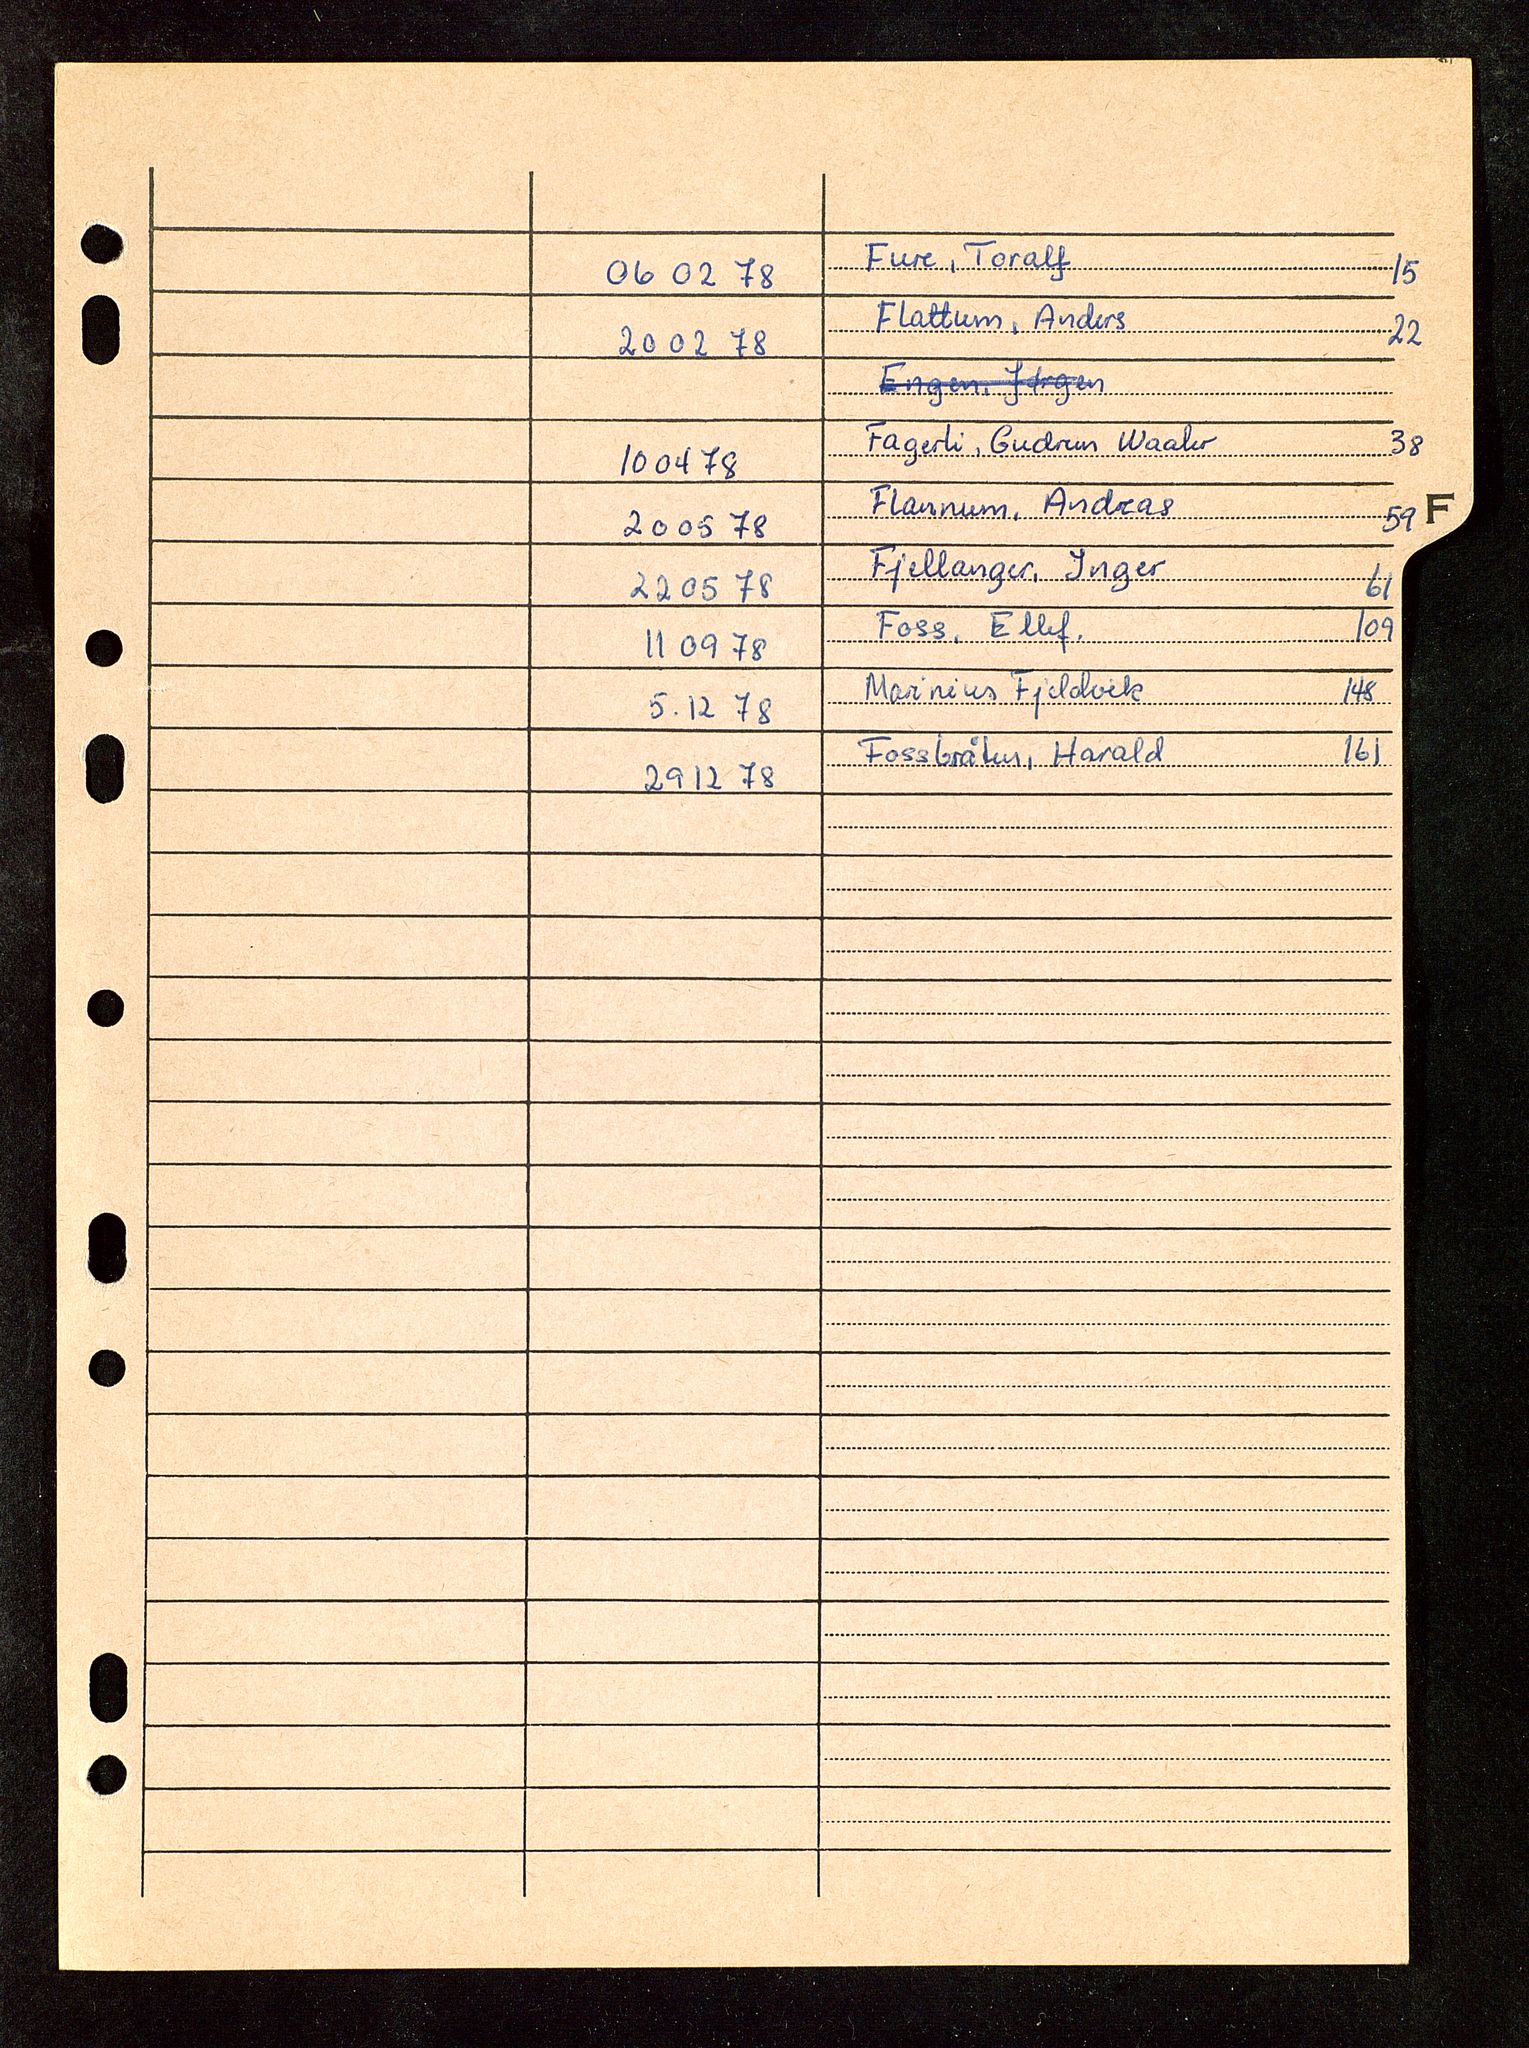 06 02 78 Fure, Toralf 15
20 02 78 Flattum, Anders 22
Engen, Jørgen
10 04 78 Fagerli, Gudrun Waaler 38
20 05 78 Flannum, Andreas 59
F
22 05 78 Fjellanger, Inger 61
11 09 78 Foss, Ellef. 109
5.12 78 Marinius Fjeldvik 148
29 12 78 Fossbråten, Harald 161